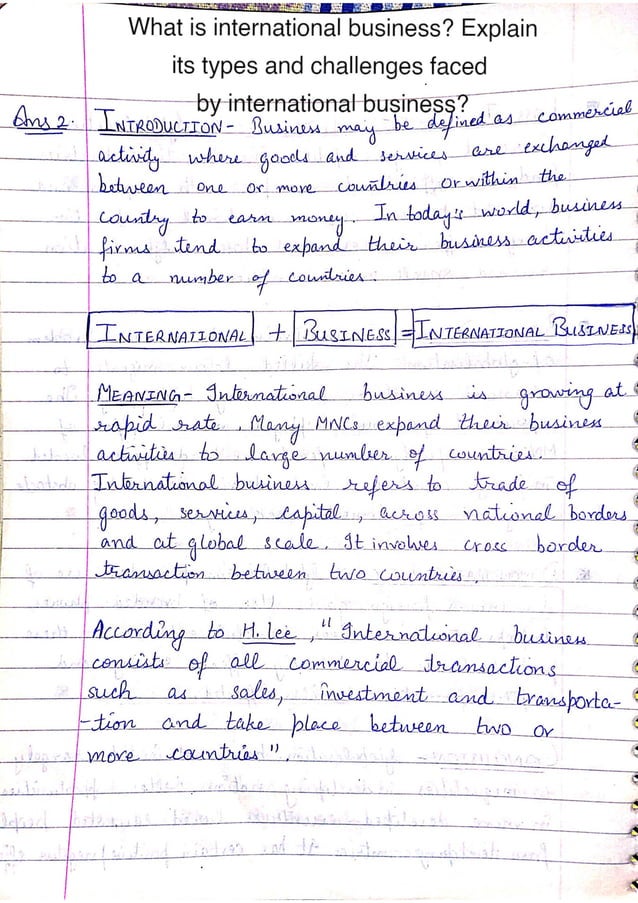 What is international business? Explain
its types and challenges faced
by international business?
Ans 2. INTRODUCTION- Business may be defined as commercial
activity where goods and services are exchanged
between one or more countries or within the
country to earn money. In today's world, business
firms tend to expand their business activities
to a number of countries.
INTERNATIONAL + BUSINESS = INTERNATIONAL BUSINESS
MEANING- International business is growing at
rapid rate. Many MNCs expand their business
activities to large number of countries.
International business refers to trade of
goods, services, capital, across national borders
and at global scale. It involves cross border
transaction between two countries.
According to H. lee, "International business
consists of all commercial transactions
such as sales, investment and transporta-
-tion and take place between two or
more countries".